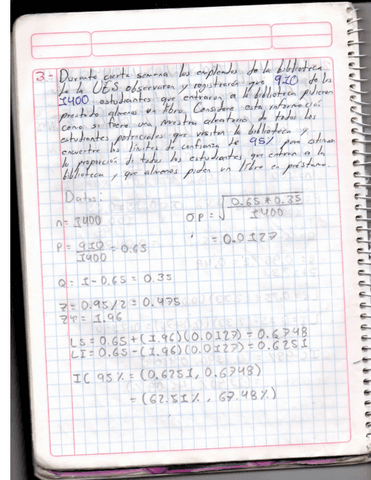 3- Durante cierta semana los empleados de la biblioteca
de la UES observaron y registraron que 910 de los
1400 estudiantes que entraron a la biblioteca pidieron
prestado al menos un libro. Considere esta información
como si fuere una muestra aleatoria de todos los
estudiantes potenciales que visitan la biblioteca y
encuentre los límites de confianza de 95% para estimar
la proporción de todos los estudiantes, que entran a la
biblioteca y que al menos piden un libro en préstamo.
Datos:
n = 1400
σp = √(0.65 * 0.35 / 1400)
P = 910/1400 = 0.65
= 0.0127
Q = 1-0.65 = 0.35
Z = 0.95/2 = 0.475
ZT = 1.96
LS = 0.65 + (1.96)(0.0127) = 0.6748
LI = 0.65 - (1.96)(0.0127) = 0.6251
IC 95% = (0.6251, 0.6748)
= (62.51%, 67.48%)